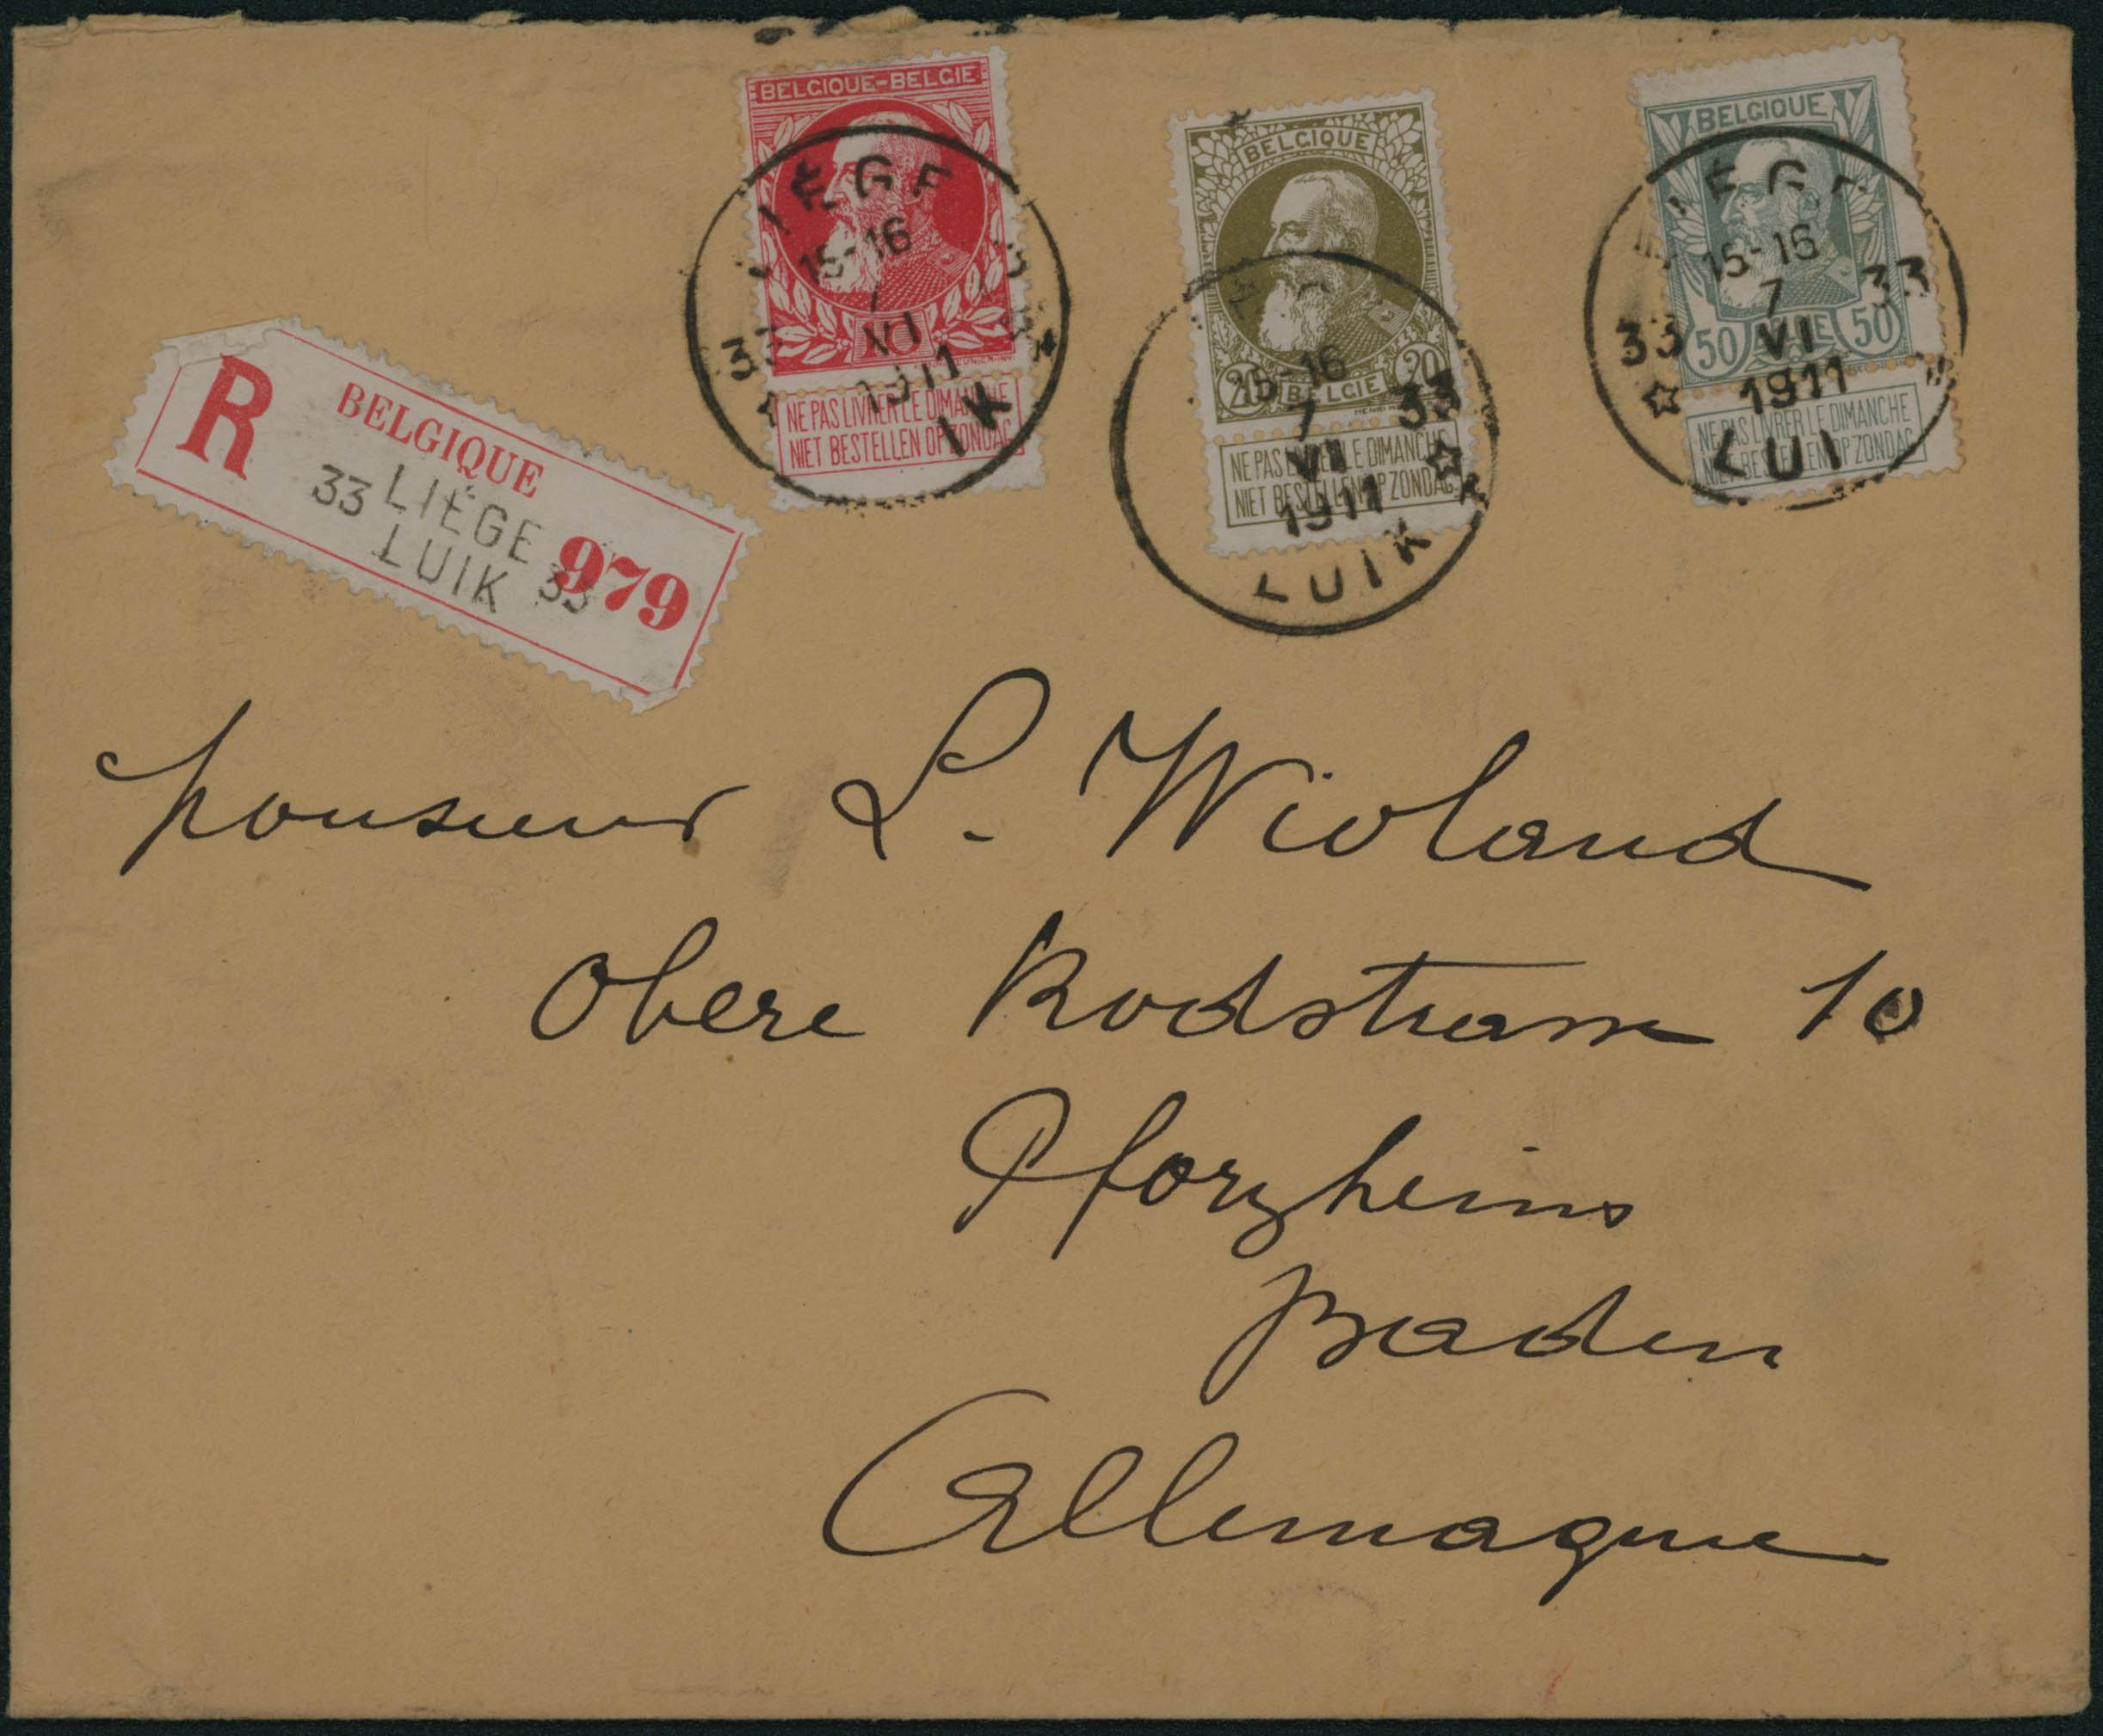 BELGIQUE-BELGIE
NE PAS LIVRER LE DIMANCHE
NIET BESTELLEN OP ZONDAG
15-16
7
VI
1911
33
BELGIQUE
20 BELGIE 20
NE PAS LIVRER LE DIMANCHE
NIET BESTELLEN OP ZONDAG
15-16
7
VI
1911
33
LUIK
BELGIQUE
50 50
NE PAS LIVRER LE DIMANCHE
NIET BESTELLEN OP ZONDAG
15-16
7
VI
1911
33 33
R
BELGIQUE
33 LIÉGE
LUIK 33
979
Monsieur L. Wieland
Obere Rodstrasse 10
Pforzheim
Baden
Allemagne